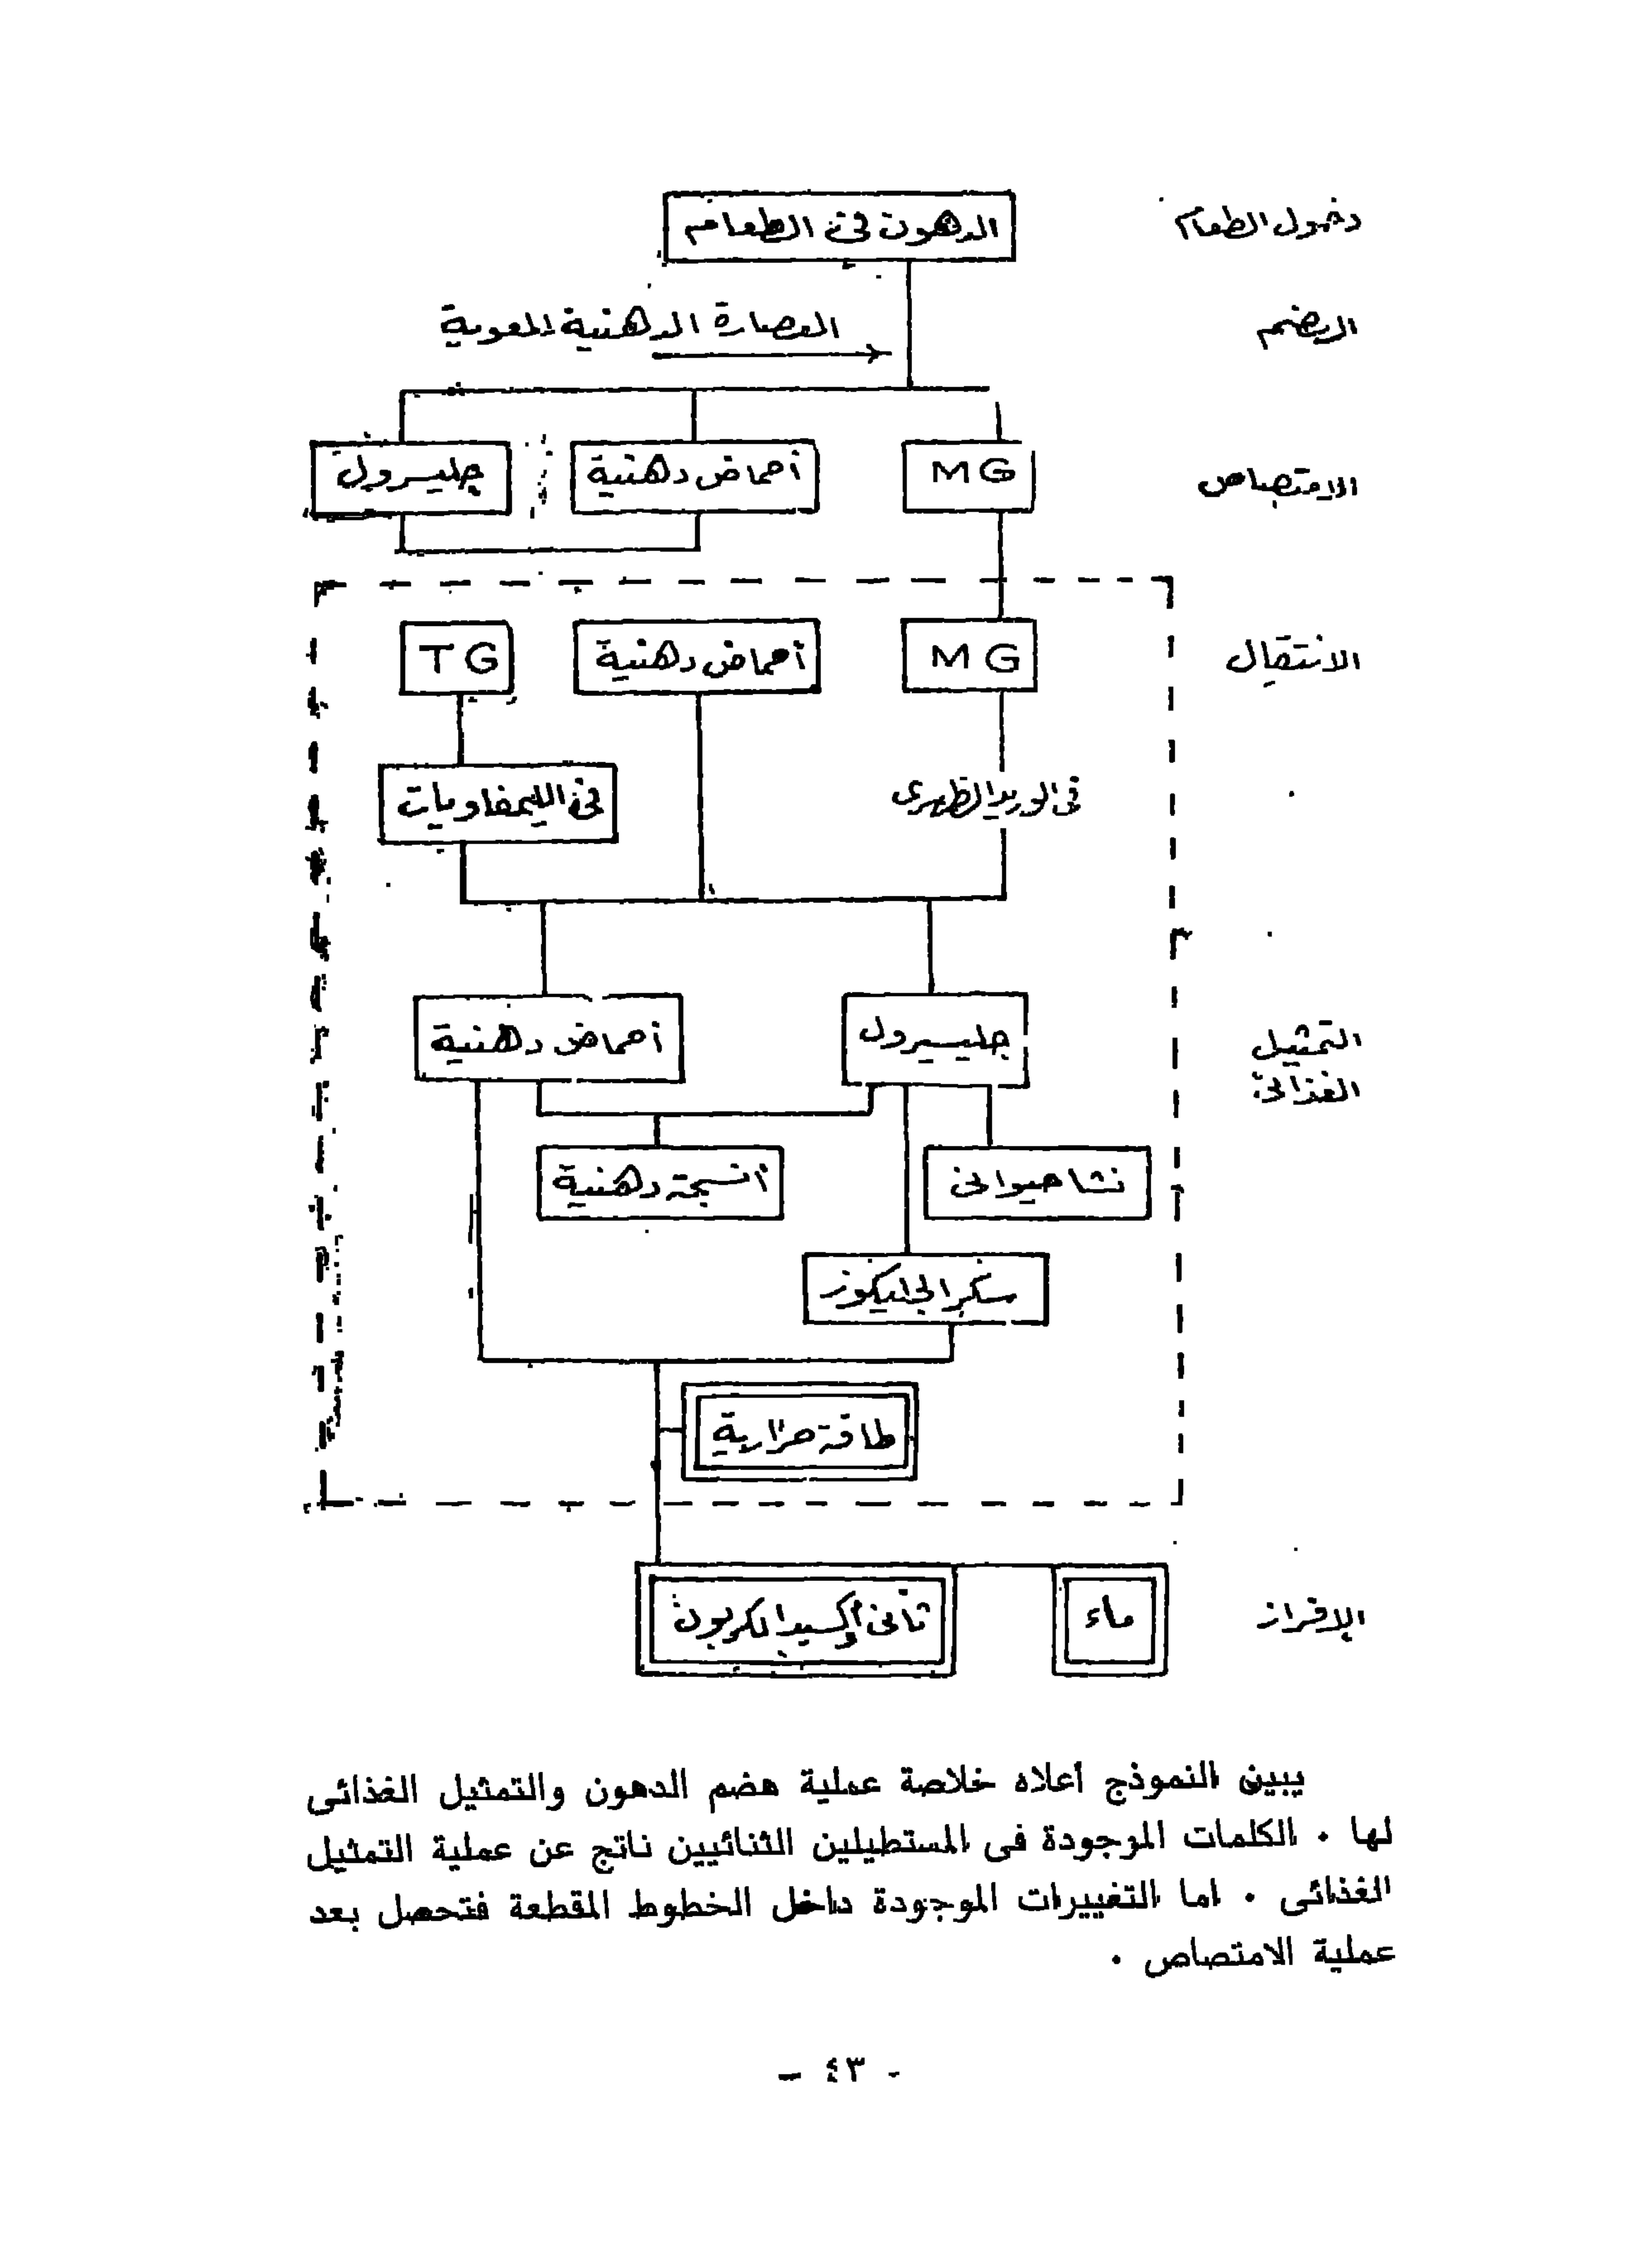 دخول الطعام
الدهون فى الطعام
الهضم
العصارة الدهنية المعوية
الامتصاص
MG
أحماض دهنية
جليسرول
الانتقال
MG
أحماض دهنية
TG
فى الوريد الظهرى
فى الليمفاويات
التمثيل
الغذائى
جليسيرول
أحماض دهنية
نشا حيوانى
أنسجة دهنية
سكر الجليكوز
طاقة حرارية
الإفراز
ماء
ثانى أكسيد الكربون
يبين النموذج أعلاه خلاصة عملية هضم الدهون والتمثيل الغذائى
لها . الكلمات الموجودة فى المستطيلين الثنائيين ناتج عن عملية التمثيل
الغذائى . اما التغييرات الموجودة داخل الخطوط المقطعة فتحصل بعد
عملية الامتصاص .
- ٤٣ -